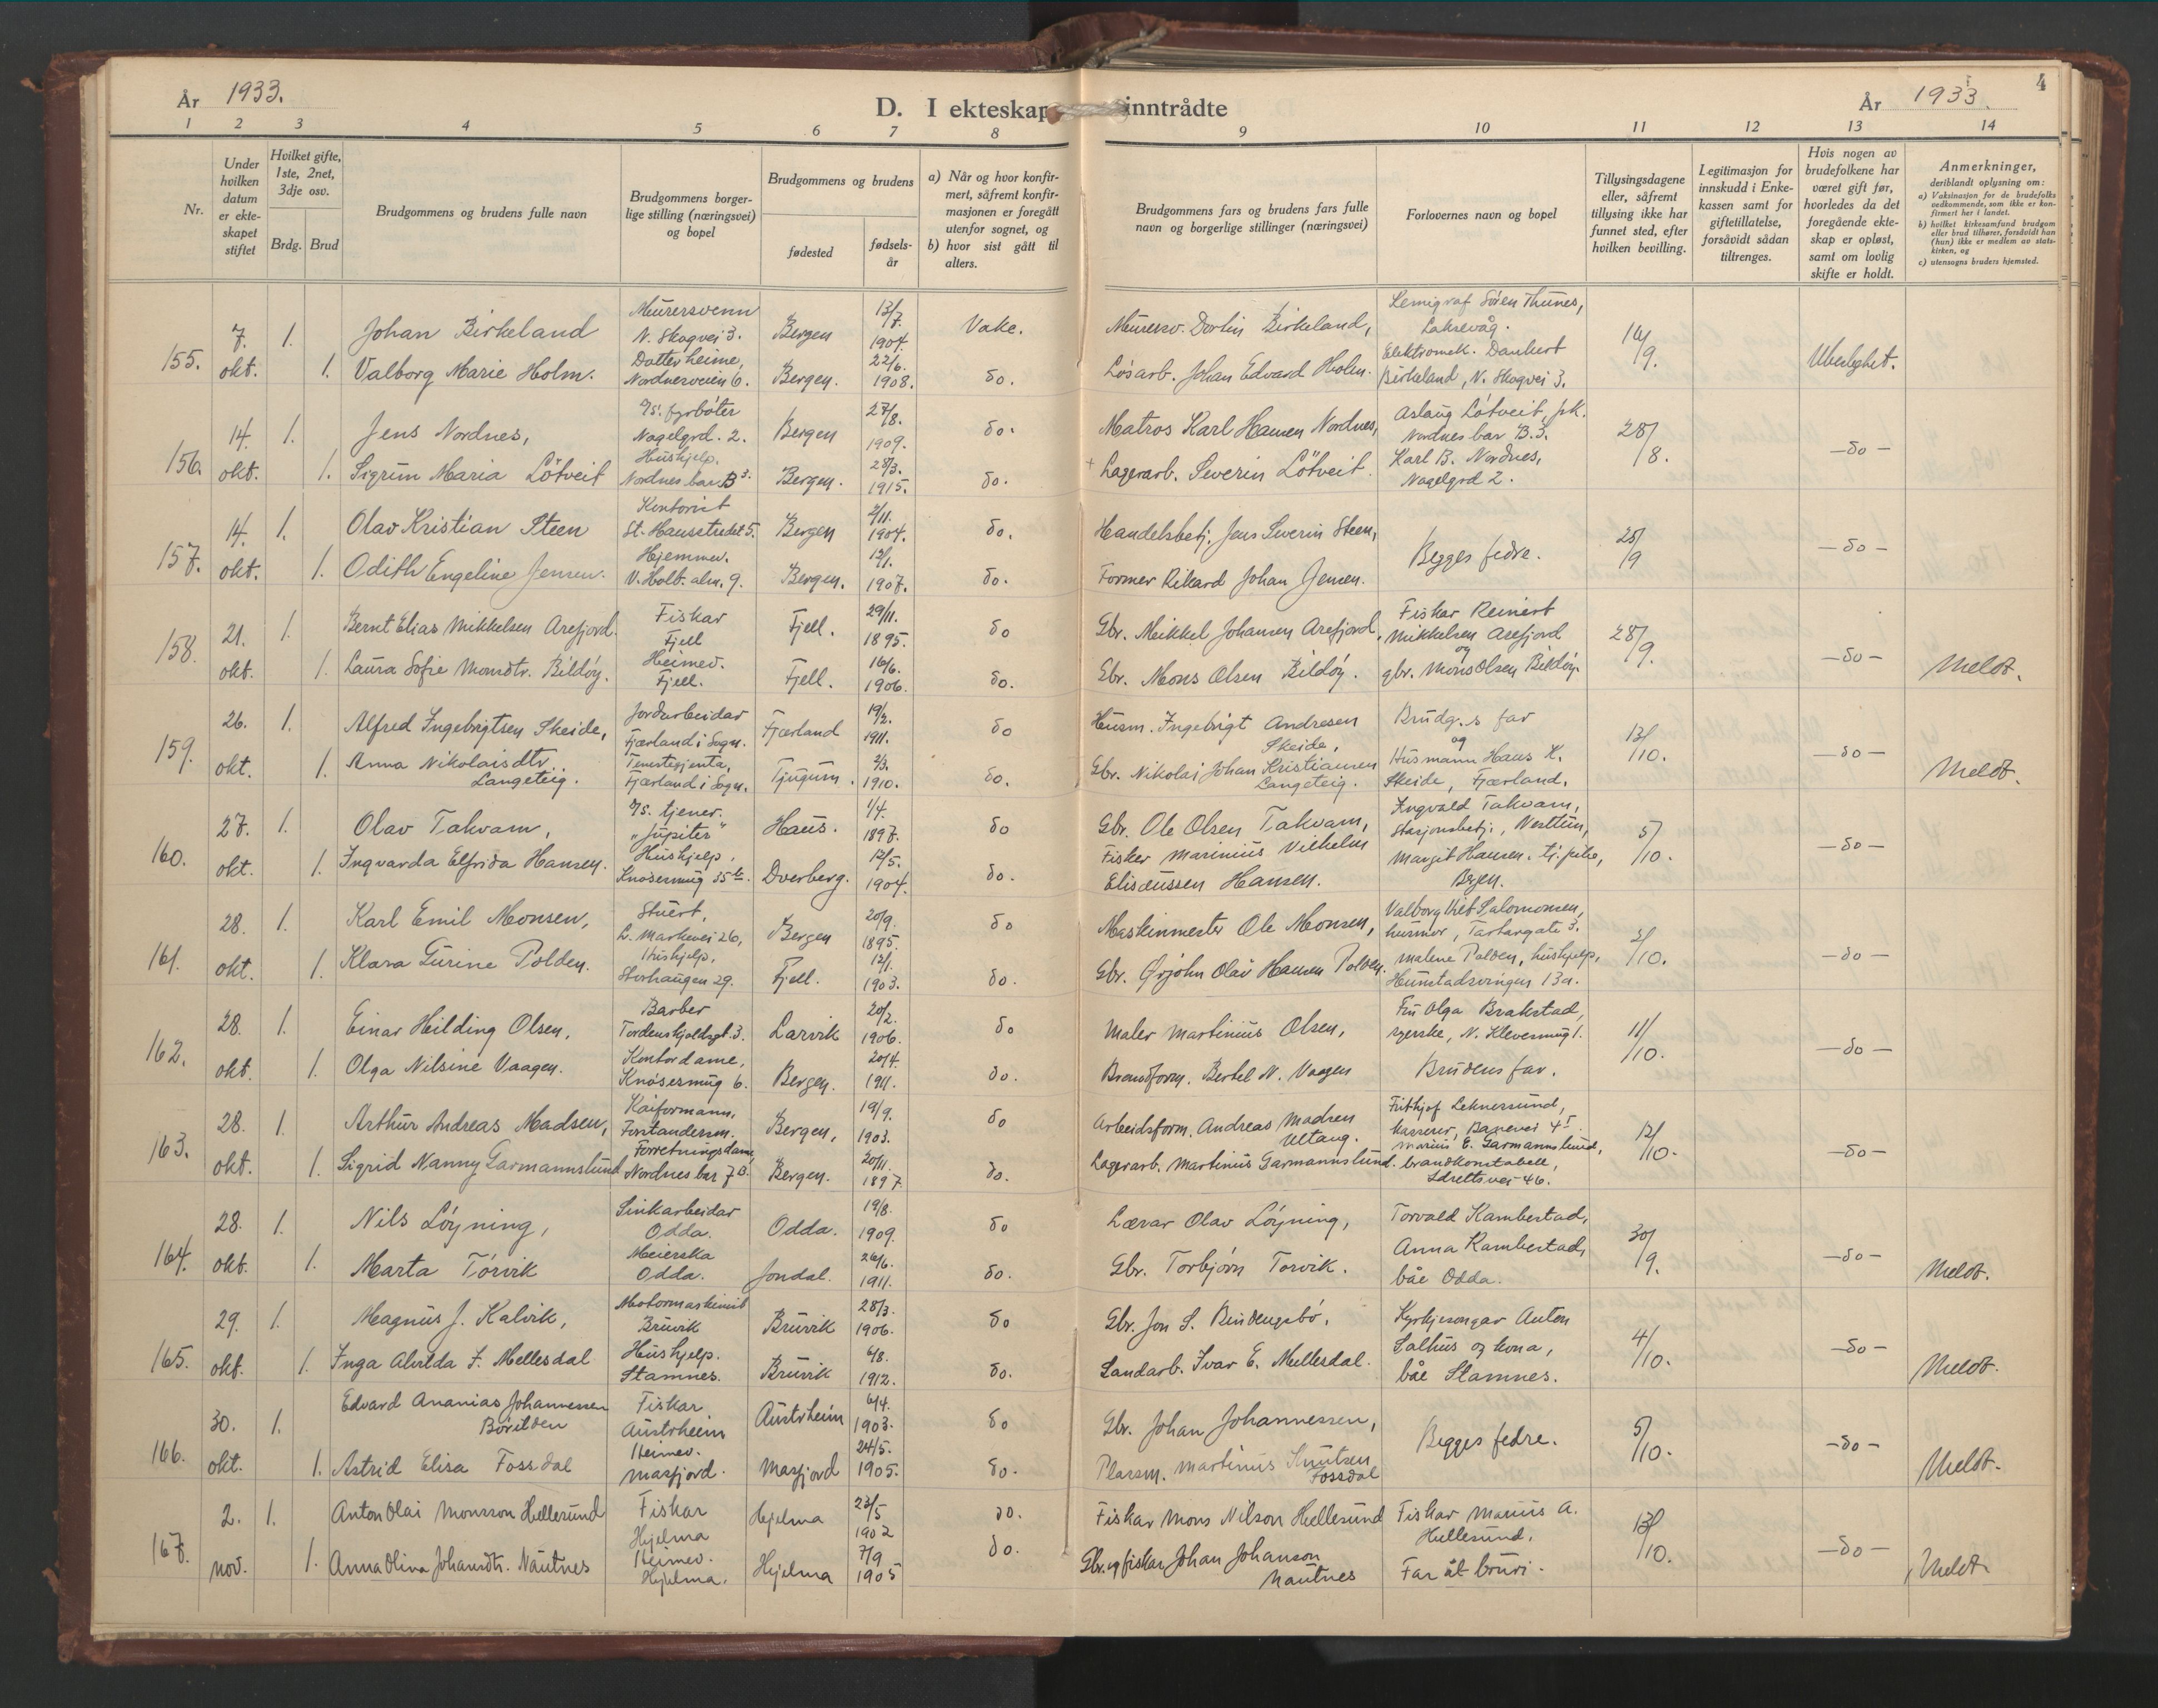 År 1933.
D. I ekteskap inntrådte
År 1933.
4
1 2 3 4 5 6 7 8 9 10 11 12 13 14
Nr.
Under hvilken datum er ekte-skapet stiftet
Hvilket gifte, 1ste, 2net, 3dje osv.
Brdg. Brud
Brudgommens og brudens fulle navn
Brudgommens borger-
lige stilling (næringsvei)
og bopel
Brudgommens og brudens
fødested
fødsels-
år
a) Når og hvor konfir-
mert, såfremt konfir-
masjonen er foregått
utenfor sognet, og
b) hvor sist gått til
alters.
Brudgommens fars og brudens fars fulle
navn og borgerlige stillinger (næringsvei)
Forlovernes navn og bopel
Tillysingsdagene
eller, såfremt
tillysing ikke har
funnet sted, efter
hvilken bevilling.
Legitimasjon for
innskudd i Enke-
kassen samt for
giftetillatelse,
forsåvidt sådan
tiltrenges.
Hvis nogen av
brudefolkene har
været gift før,
hvorledes da det
foregående ekte-
skap er opløst,
samt om lovlig
skifte er holdt.
Anmerkninger,
deriblandt oplysning om:
a) Vaksinasjon for de brudefolks
vedkommende, som ikke er kon-
firmert her i landet.
b) hvilket kirkesamfund brudgom
eller brud tilhører, forsåvidt han
(hun) ikke er medlem av stats-
kirken, og
c) utensogns bruders hjemsted.
155. 7. okt. 1. Johan Birkeland Murersvenn N. Skogvei 3. Bergen 13/7. 1904. Vake. Murersv. Birkeland, Søren Thunes, Laksevåg. 14/9. Uberlighet.
1. Valborg Marie Holm. Datter heime, Nordnesveien 6. Bergen. 22/6. 1908. do. Løsarb. Johan Edvard Holm. Elektromek. Birkeland, N. Skogvei 3.
156. 14. okt. 1. Jens Nordnes, D/S. fyrbøter Nagelgrd. 2. Bergen 27/8. 1909. do. Matros Karl Hansen Nordnes, Aslaug Løtveit, Nordnesbar B.3. 28/8. -do-
1. Sigrun Maria Løtveit Hushjelp. Nordnesbar B 3. Bergen. 28/3. 1915. do. + Lagerarb. Severin Løtveit. Karl B. Nordnes, Nagelgrd 2.
157. 14. okt. 1. Olav Kristian Steen Kontorist St. Hansstredet 5. Bergen 2/11. 1904. do. Handelsbetj. Jens Severin Steen, Begges fedre. 25/9 -do-
1. Odith Engeline Jensen. Hjemmev. V. Holb. alm. 9. Bergen. 12/1. 1907. do. Former Rikard Johan Jensen.
158. 21. okt. 1. Bernt Elias Mikkelsen Arefjord. Fiskar Fjell Fjell. 29/11. 1895. do Gbr. Mikkel Johansen Arefjord, Fiskar Reinert Mikkelsen Arefjord og 28/9. -do- Meldt.
1. Laura Sofie Monsdtr. Bildøy. Heimev. Fjell. Fjell. 16/6. 1906. do. Gbr. Mons Olsen Bildøy. gbr. Mons Olsen Bildøy.
159. 26. okt. 1. Alfred Ingebrigtsen Skeide, Jordarbeidar Fjærland i Sogn. Fjærland 19/2. 1911. do Husm. Ingebrigt Andresen Skeide, Brudg.s far og 13/10. -do- Meldt.
1. Anna Nikolaisdtr Langeteig. Tenestegjenta, Fjærland i Sogn. Tjugum. 2/3. 1910. do. Gbr. Nikolai Johan Kristiansen Langeteig. Husmann Hans K. Skeide, Fjærland.
160. 27. okt. 1. Olav Takvam, D/S. tjener. "Jupiter" Haus. 1/4. 1897. do Gbr. Ole Olsen Takvam, Ingvald Takvam, stasjonsbetj., Nesttun, 5/10. -do-
1. Ingvarda Elfrida Hansen. Hushjelp, Knøsesmug Dverberg. 12/5. 1904. do. Fisker Marinius Vilhelm Elisæussen Hansen. Margit Hansen, tj.pike, Bergen.
161. 28. okt. 1. Karl Emil Monsen, Stuert, L. Markevei 26, Bergen 20/9. 1895. do Maskinmester Ole Monsen, Valborg Salomonsen, husmor, Tartargate 3. 2/10. -do-
1. Klara Gurine Polden. Hushjelp, Storhaugen 29. Fjell. 12/1. 1903. do. Gbr. Ørjohn Olai Hansen Polden. Malene Polden, hushjelp, Hunstadsvingen 13a.
162. 28. okt. 1. Einar Hilding Olsen, Barber Tordenskjoldsgt. 3. Larvik 20/2. 1906. do Maler Martinius Olsen, Fru Olga Brakstad, syerske, N. Klevesmug 1. 11/10. -do-
1. Olga Nilsine Vaagen. Kontordame, Knøsesmug 6. Bergen. 20/4. 1911. do. Brandform. Bertel N. Vaagen Brudens far.
163. 28. okt. 1. Arthur Andreas Madsen, Kaiformann, Forstandersm. Bergen, 19/9. 1903. do Arbeidsform. Andreas Madsen Ultang. Frithjof Leknessund, kasserer, Banevei 4 12/10. -do-
1. Sigrid Nanny Garmannslund Forretningsdame Nordnesbar 7 B. Bergen. 20/11. 1897. do. Lagerarb. Martinus Garmannslund. Marius E. Garmannslund, brandkonstabell, Idrettsvei 46.
164. 28. okt. 1. Nils Løyning, Sinkarbeidar Odda. Odda. 19/8. 1909. do Lærar Olav Løyning, Torvald Kambestad, 30/9. -do- Meldt.
1. Marta Torvik Meierska Odda. Jondal. 26/6. 1911. do. Gbr. Torbjørn Torvik. Anna Kambestad, båe Odda.
165. 29. okt. 1. Magnus J. Kalvik, Motormaskinist Bruvik Bruvik 28/3. 1906. do Gbr. Jon S. Kyrkjesongar Anton 4/10. -do- Meldt.
1. Inga Alvilda I. Mellesdal Hushjelp. Stamnes. Bruvik 6/8. 1912. do. Sandarb. Ivar E. Mellesdal. Salhus og kona, båe Stamnes.
166. 30. okt. 1. Edvard Ananias Johannessen Børilden Fiskar Austrheim Austrheim 6/4. 1903. do Gbr. Johan Johannessen, Begges fedre. 5/10. -do- Meldt.
1. Astrid Elisa Fossdal Heimev. Masfjord. Masfjord 24/5. 1905. do. Plassm. Martinus Knutsen Fossdal
167. 2. nov. 1. Anton Olai Monsson Hellesund Fiskar Hjelma Hjelma 23/5 1902 do. Fiskar Mons Nilson Hellesund Fiskar Marius A. Hellesund. 13/10. -do- Meldt
1. Anna Olina Johansdtr. Nautnes Heimev. Hjelma. Hjelma 7/9 1905 do. Gbr. og fiskar Johan Johanson Nautnes Far åt bruri.